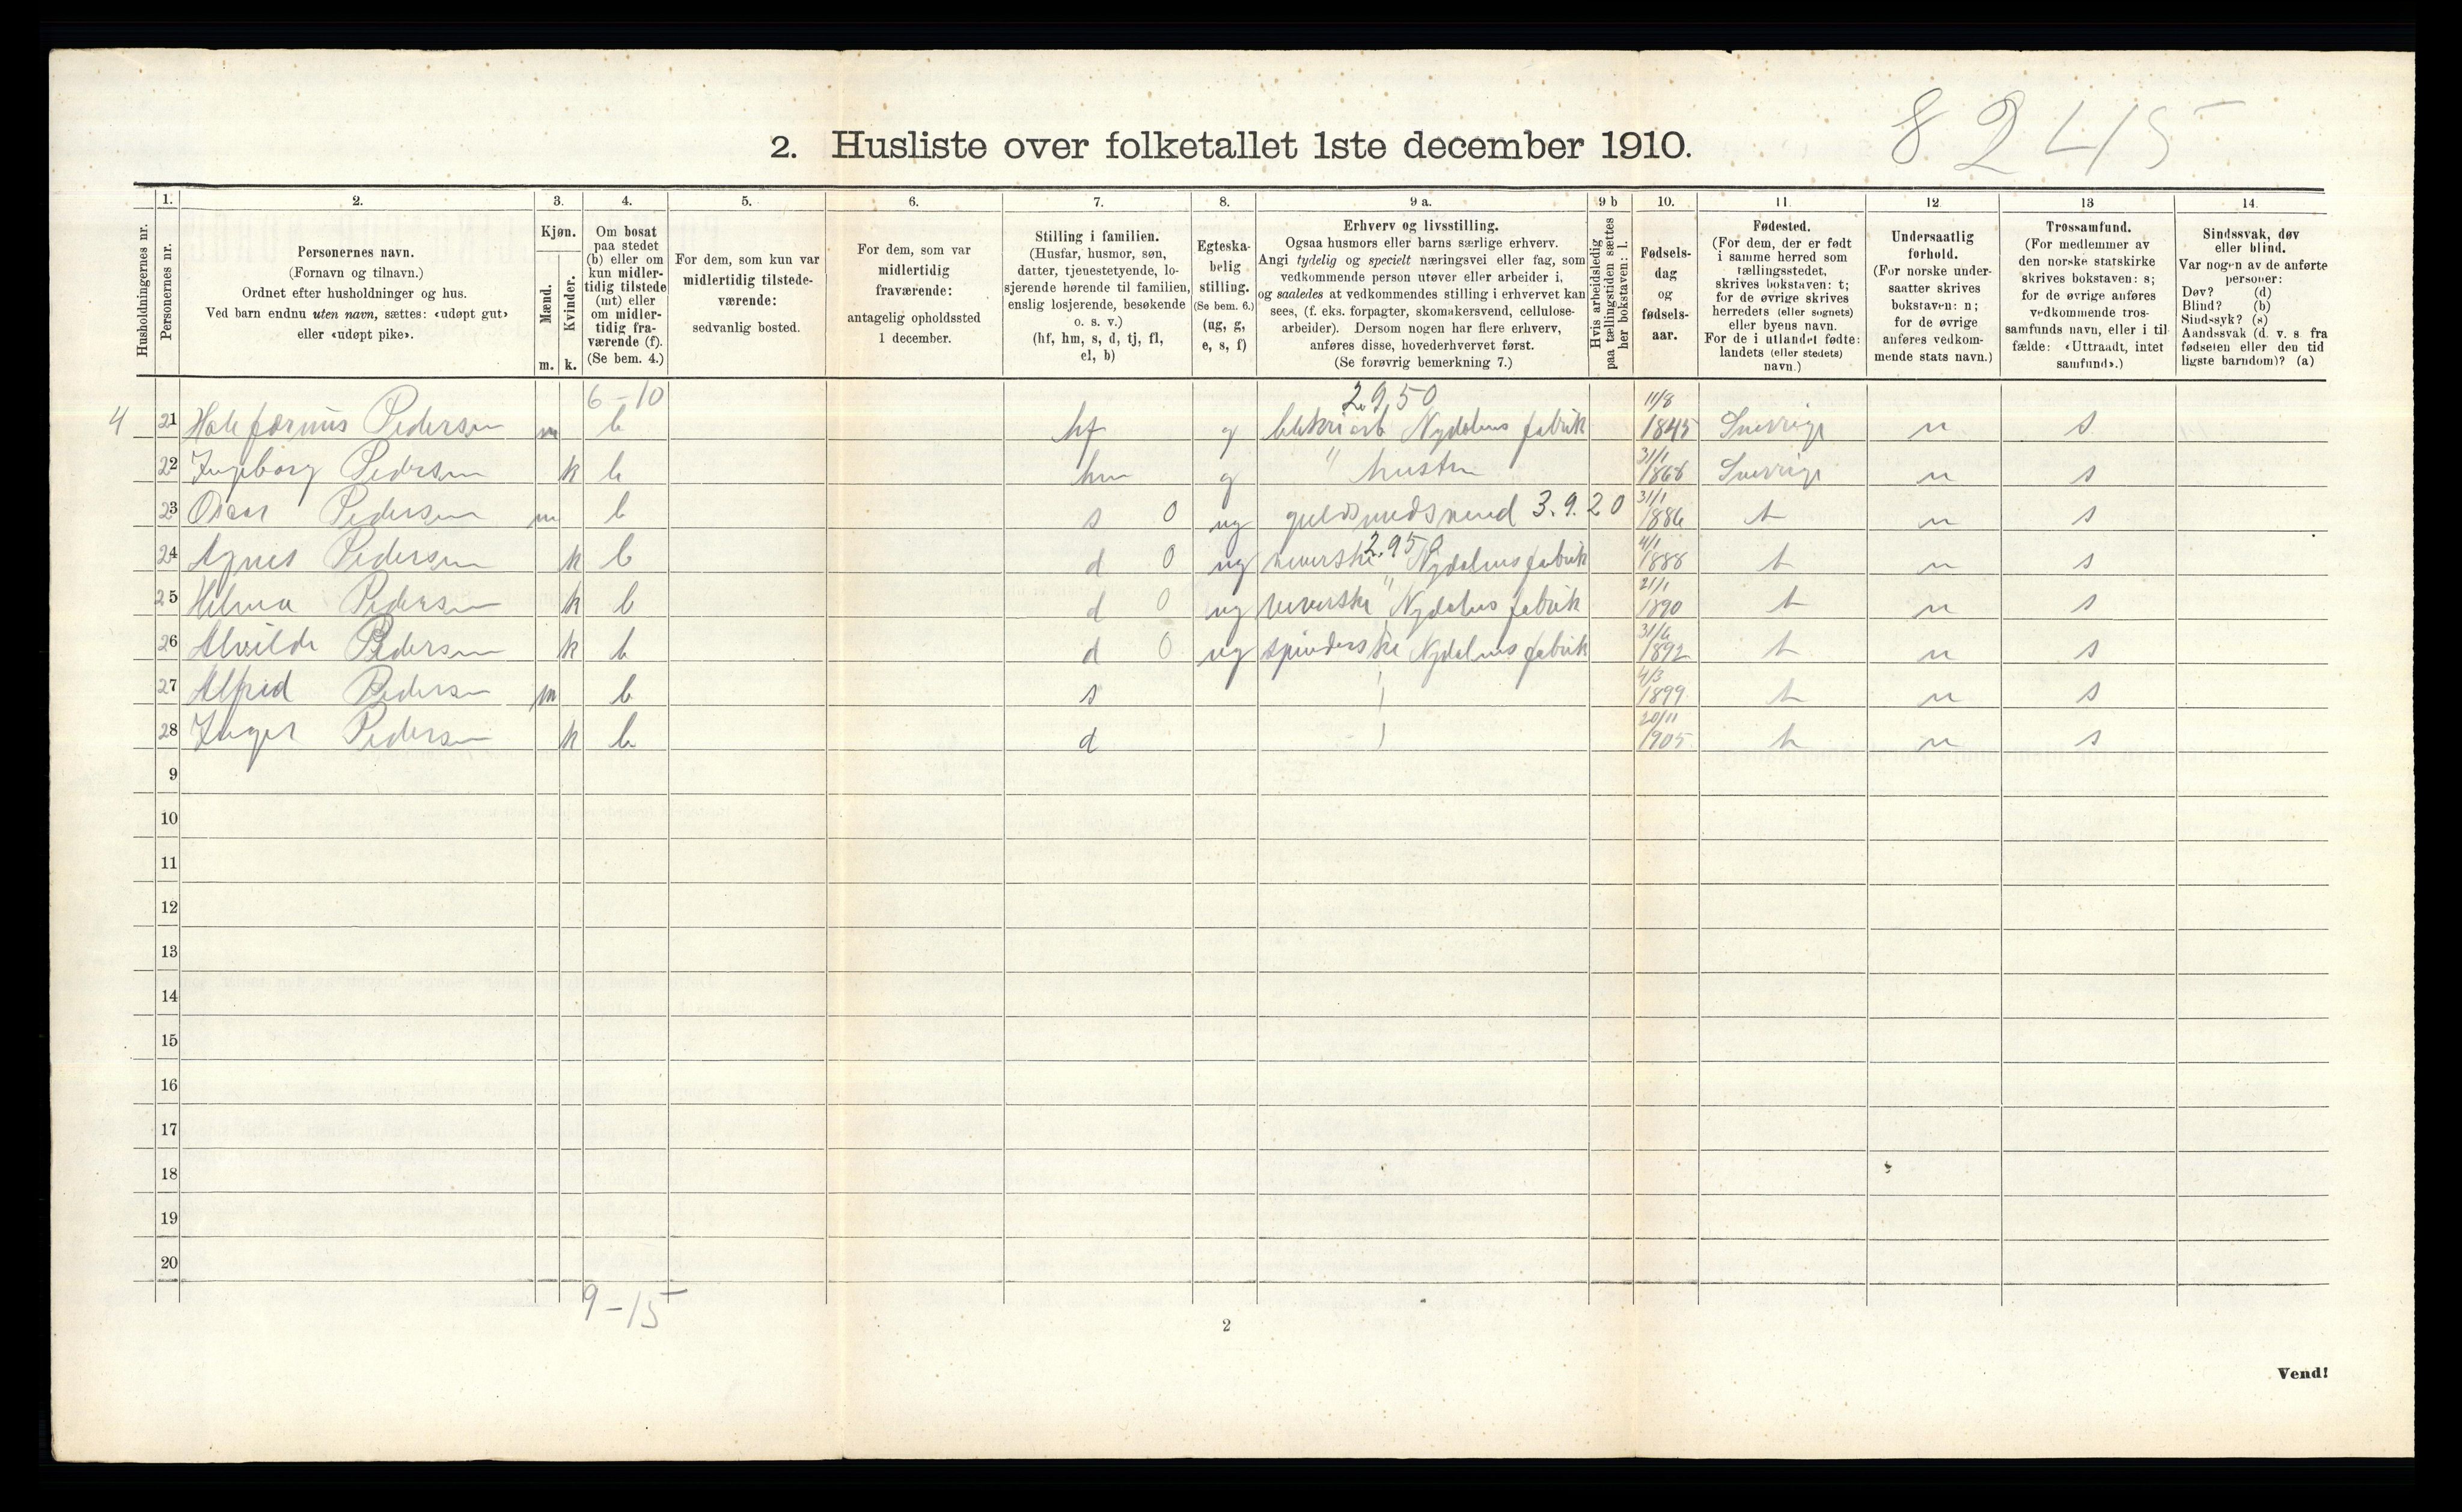 82415
2. Husliste over folketallet 1ste december 1910.
Husholdningernes nr.
1. Personernes nr.
2. Personernes navn.
(Fornavn og tilnavn.)
Ordnet efter husholdninger og hus.
Ved barn endnu uten navn, sættes: «udøpt gut»
eller «udøpt pike».
3. Kjøn.
Mænd. Kvinder.
m. k.
4. Om bosat
paa stedet
(b) eller om
kun midler-
tidig tilstede
(mt) eller
om midler-
tidig fra-
værende (f).
(Se bem. 4.)
5. For dem, som kun var
midlertidig tilstede-
værende:
sedvanlig bosted.
6. For dem, som var
midlertidig
fraværende:
antagelig opholdssted
1 december.
7. Stilling i familien.
(Husfar, husmor, søn,
datter, tjenestetyende, lo-
sjerende hørende til familien,
enslig losjerende, besøkende
o. s. v.)
(hf, hm, s, d, tj, fl,
el, b)
8. Egteska-
belig
stilling.
(Se bem. 6.)
(ug, g,
e, s, f)
9 a. Erhverv og livsstilling.
Ogsaa husmors eller barns særlige erhverv.
Angi tydelig og specielt næringsvei eller fag, som
vedkommende person utøver eller arbeider i,
og saaledes at vedkommendes stilling i erhvervet kan
sees, (f. eks. forpagter, skomakersvend, cellulose-
arbeider). Dersom nogen har flere erhverv,
anføres disse, hovederhvervet først.
(Se forøvrig bemerkning 7.)
9 b Hvis arbeidsledig
paa tællingstiden sættes
her bokstaven: l.
10. Fødsels-
dag
og
fødsels-
aar.
11. Fødested.
(For dem, der er født
i samme herred som
tællingsstedet,
skrives bokstaven: t;
for de øvrige skrives
herredets (eller sognets)
eller byens navn.
For de i utlandet fødte:
landets (eller stedets)
navn.)
12 Undersaatlig
forhold.
(For norske under-
saatter skrives
bokstaven: n;
for de øvrige
anføres vedkom-
mende stats navn.)
13 Trossamfund.
(For medlemmer av
den norske statskirke
skrives bokstaven: s;
for de øvrige anføres
vedkommende tros-
samfunds navn, eller i til-
fælde: «Uttraadt, intet
samfund».)
14. Sindssvak, døv
eller blind.
Var nogen av de anførte
personer:
Døv? (d)
Blind? (b)
Sindssyk? (s)
Aandssvak (d. v. s. fra
fødselen eller den tid-
ligste barndom)? (a)
6-10 2.9.50
4 21 Pedersen m b hf g Nydalens fabrik 11/8 1845 Sverrige n s
22 Ingeborg Pedersen k b hm g " hustru 31/1 1868 Sverrige n s
23 Oscar Pedersen m b s 0 ug guldsmedsvend 3.9.20 31/1 1886 t n s
24 Agnes Pedersen k b d 0 ug veverske 2.950 Nydalens fabrik 4/1 1888 t n s
25 Helma Pedersen k b d 0 ug veverske " Nydalens fabrik 21/1 1890 t n s
26 Alvilde Pedersen k b d 0 ug spinderske Nydalens fabrik 31/6 1892 t n s
27 Alfred Pedersen m b s 4/3 1899 t n s
28 Inger Pedersen k b d 20/11 1905 t n s
9
10
11
12
13
14
15
16
17
18
19
20
9-15
2
Vend!